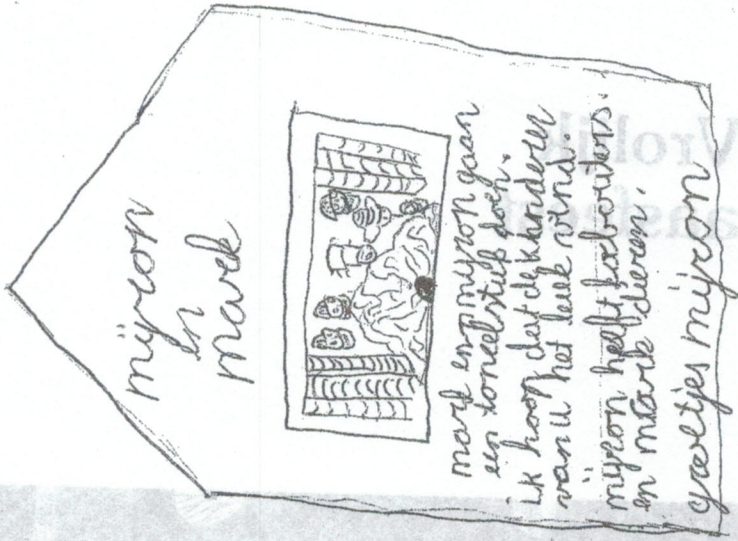 mÿron
en
mark
mark en mÿron gaan
een toneelstuk doen.
ik hoop dat de kinderen
van u het leuk vind.
mÿron heeft kabouters.
en mark dieren.
groetjes mÿron